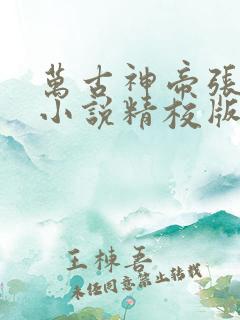 萬古神帝張
小說精校版
王棟吾
未經同意禁止轉載